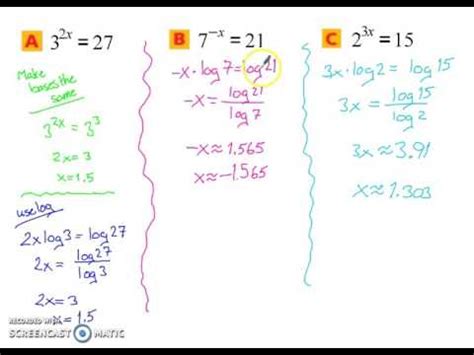 A 3^{2x} = 27
Make
bases the
same
3^{2x} = 3^3
2x = 3
x = 1.5
use log
2x log 3 = log 27
2x = \frac{log 27}{log 3}
2x = 3
x = 1.5
B 7^{-x} = 21
-x · log 7 = log 21
-x = \frac{log 21}{log 7}
-x ≈ 1.565
x ≈ -1.565
C 2^{3x} = 15
3x · log 2 = log 15
3x = \frac{log 15}{log 2}
3x ≈ 3.91
x ≈ 1.303
RECORDED WITH
SCREENCAST MATIC